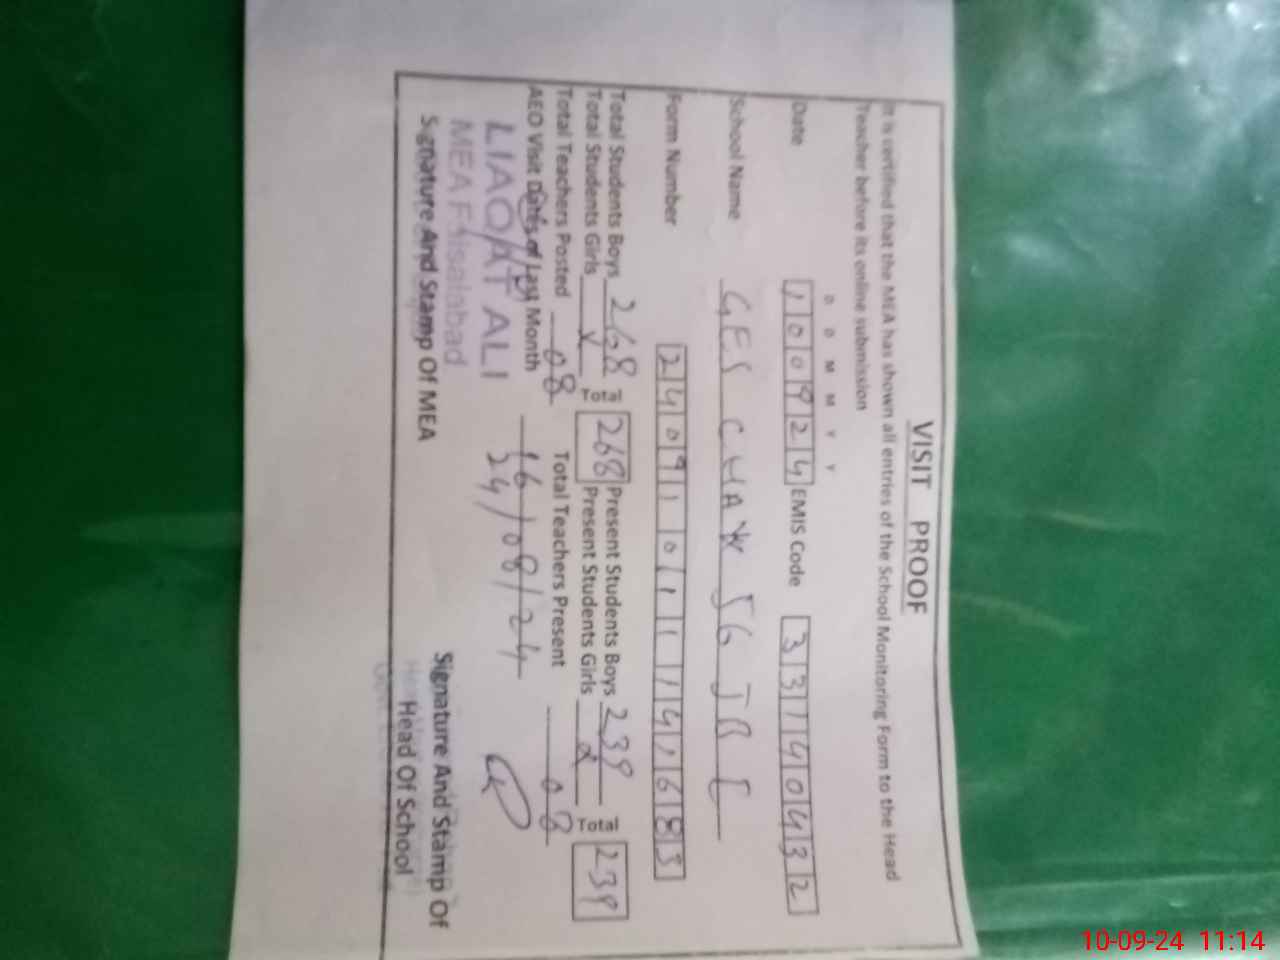 VISIT PROOF
It is certified that the MEA has shown all entries of the School Monitoring Form to the Head
Teacher before its online submission
D D M M Y Y
Date 100924 EMIS Code 33140432
School Name GES CHAK 56 JB I
Form Number 2409101114,1683
Total Students Boys 268 Total 268 Present Students Boys 239 Total 239
Total Students Girls X Present Students Girls X
Total Teachers Posted 08 Total Teachers Present 08
AEO Visit Dates of Last Month 16
24/08/24
LIAQAT ALI
MEA Faisalabad
Signature And Stamp Of MEA
Signature And Stamp Of
Head Of School
10-09-24 11:14